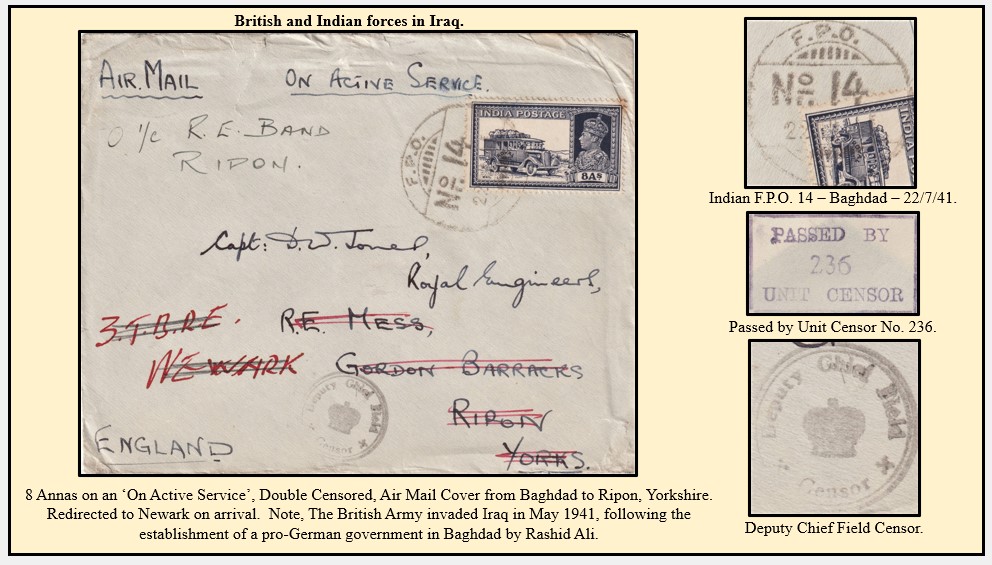 British and Indian forces in Iraq.
AIR. MAIL ON ACTIVE SERVICE.
O i/c R.E. BAND
RIPON.
INDIA POSTAGE
8As
F.P.O.
No. 14
Capt: D.W. Jones,
Royal Engineers,
3.T.B.R.E.
R.E. MESS,
NEWARK
GORDON BARRACKS
RIPON
YORKS.
ENGLAND
Deputy Chief Field
Censor
8 Annas on an ‘On Active Service’, Double Censored, Air Mail Cover from Baghdad to Ripon, Yorkshire.
Redirected to Newark on arrival. Note, The British Army invaded Iraq in May 1941, following the
establishment of a pro-German government in Baghdad by Rashid Ali.
F.P.O.
No. 14
INDIA
Indian F.P.O. 14 – Baghdad – 22/7/41.
PASSED BY
236
UNIT CENSOR
Passed by Unit Censor No. 236.
Deputy Chief Field
Censor
Deputy Chief Field Censor.